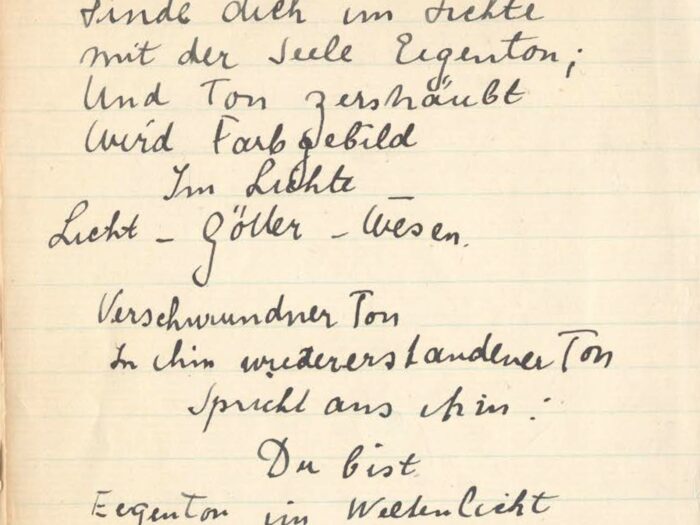 Finde dich im Lichte
mit der Seele Eigenton;
Und Ton zerstäubt
Wird Farbgebild
Im Lichte
Licht – Götter – Wesen.
Verschwundner Ton
In ihm wiedererstandener Ton
Spricht aus ihm:
Du bist
Eigenton im Weltenlicht